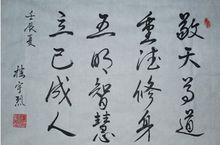 敬天尊道
重德修身
五明智慧
立己成人
壬辰夏
楼宇烈